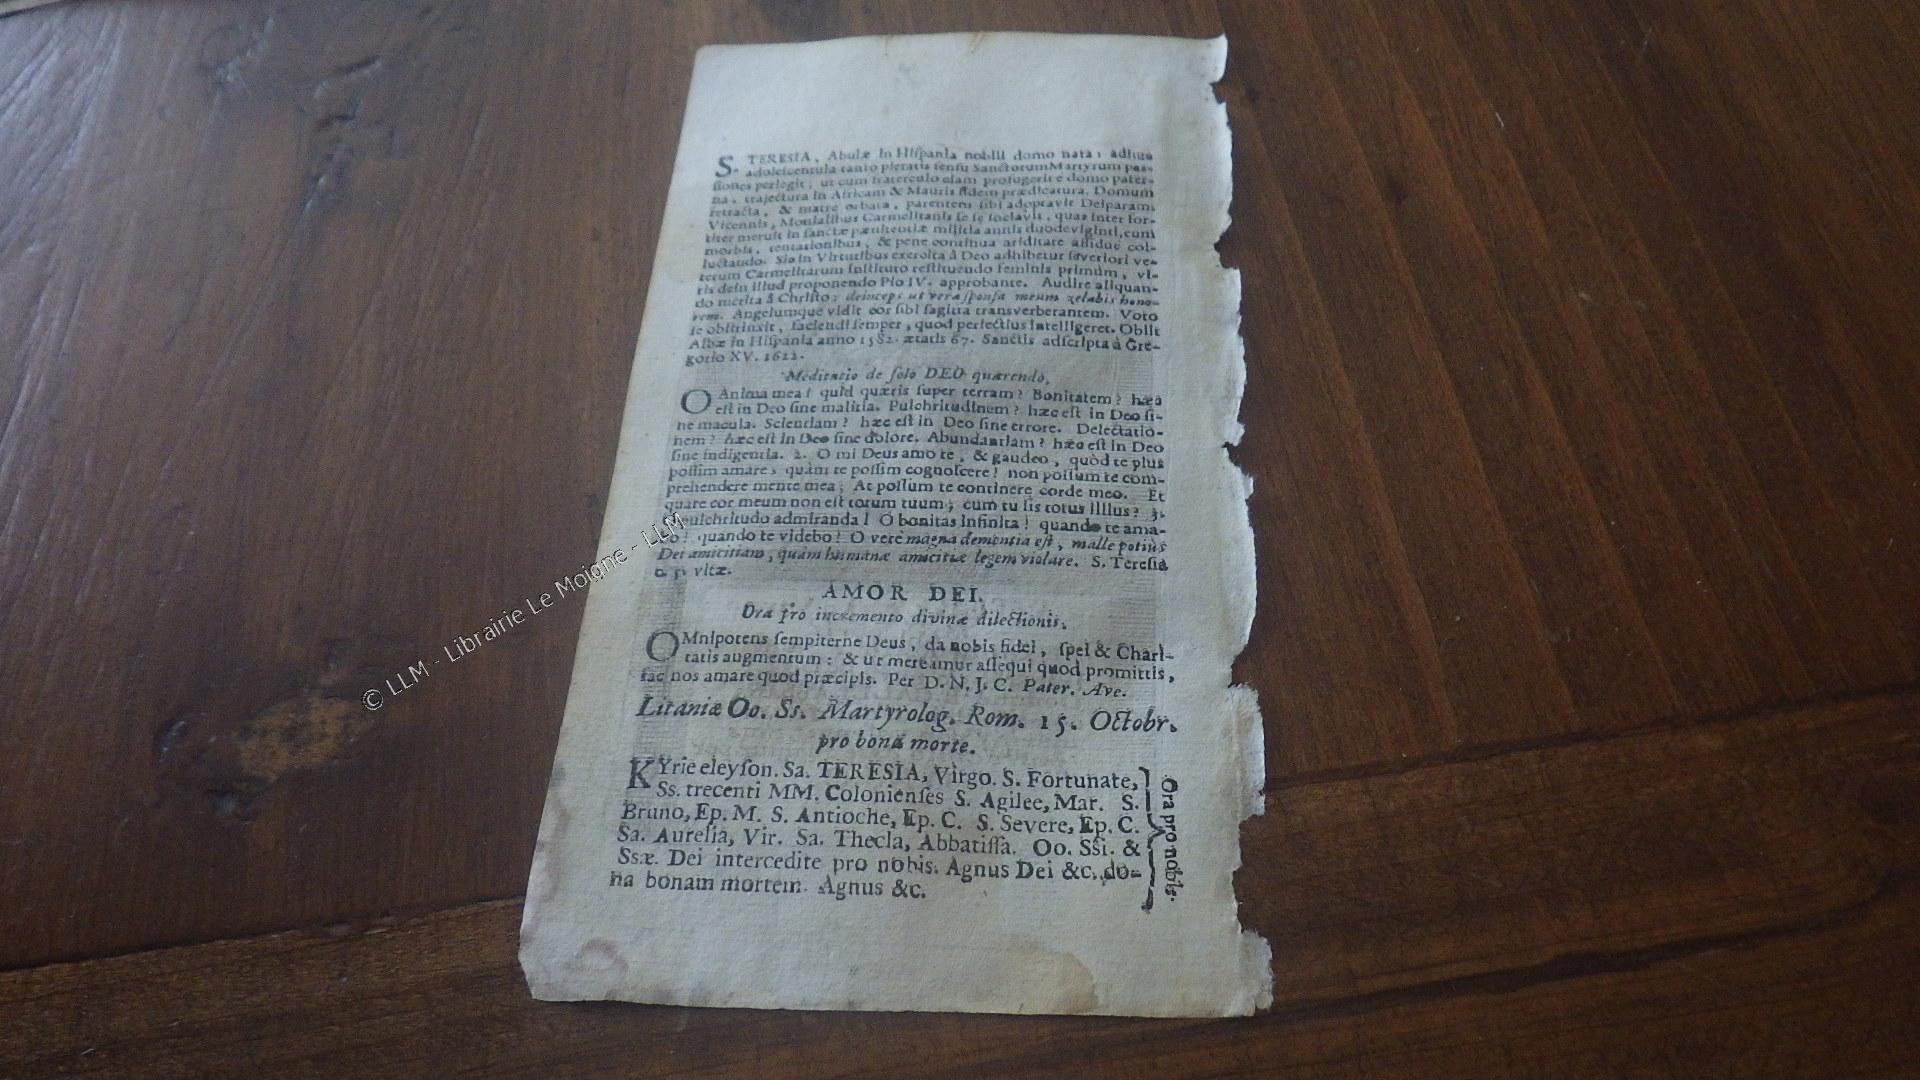 S. TERESIA, Abulæ in Hispania nobili domo nata, adhuc
adolescentula tanto pietatis sensu Sanctorum Martyrum pas-
siones perlegit, ut cum fraterculo clam profugerit e domo pater-
na, trajectura in Africam & Mauris fidem prædicatura. Domum
retracta, & matre orbata, parentem sibi adoptavit Deiparam.
Vicennis, Monialibus Carmelitanis se se sociavit, quas inter for-
titer meruit in sanctæ pœnitentiæ militia annis duodeviginti, cum
morbis, tentationibus, & pene continua ariditate assidue col-
luctando. Sic in Virtutibus exercita à Deo adhibetur severiori ve-
terum Carmelitarum instituto restituendo feminis primùm, vi-
ris dein illud proponendo Pio IV. approbante. Audire aliquan-
do merita à Christo: deinceps ut vera sponsa meum zelabis hono-
rem. Angelumque vidit cor sibi sagitta transverberantem. Voto
se obstrinxit, faciendi semper, quod perfectius intelligeret. Obiit
Albæ in Hispania anno 1582. ætatis 67. Sanctis adscripta à Gre-
gorio XV. 1622.
Meditatio de solo DEO quærendo.
O Anima mea! quid quæris super terram? Bonitatem? hæc
est in Deo sine malitia. Pulchritudinem? hæc est in Deo si-
ne macula. Scientiam? hæc est in Deo sine errore. Delectatio-
nem? hæc est in Deo sine dolore. Abundantiam? hæc est in Deo
sine indigentia. 2. O mi Deus amo te, & gaudeo, quòd te plus
possim amare, quàm te possim cognoscere! non possum te com-
prehendere mente mea; At possum te continere corde meo. Et
quare cor meum non est totum tuum; cum tu sis totus illius? 3.
O pulchritudo admiranda! O bonitas infinita! quando te ama-
bo? quando te videbo? O verè magna dementia est, malle potiùs
Dei amicitiam, quàm humanæ amicitiæ legem violare. S. Teresia
vitæ.
AMOR DEI.
Ora pro incremento divinæ dilectionis.
OMnipotens sempiterne Deus, da nobis fidei, spei & Chari-
tatis augmentum: & ut mereamur assequi quod promittis,
fac nos amare quod præcipis. Per D. N. J. C. Pater. Ave.
Litaniæ Oo. Ss. Martyrolog. Rom. 15. Octobr.
pro bona morte.
KYrie eleyson. Sa. TERESIA, Virgo. S. Fortunate,
Ss. trecenti MM. Colonienses S. Agilee, Mar. S.
Bruno, Ep. M. S. Antioche, Ep. C. S. Severe, Ep. C.
Sa. Aurelia, Vir. Sa. Thecla, Abbatissa. Oo. Ssi. &
Ssæ. Dei intercedite pro nobis. Agnus Dei &c. do-
na bonam mortem. Agnus &c.
Ora pro nobis.
© LLM - Librairie Le Moigne - LLM